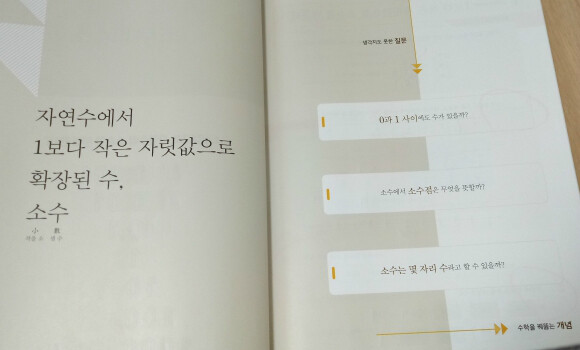 자연수에서
1보다 작은 자릿값으로
확장된 수,
소수
小 數
작을 소 셀 수
생각지도 못한 질문
0과 1 사이에도 수가 있을까?
소수에서 소수점은 무엇을 뜻할까?
소수는 몇 자리 수라고 할 수 있을까?
수학을 꿰뚫는 개념